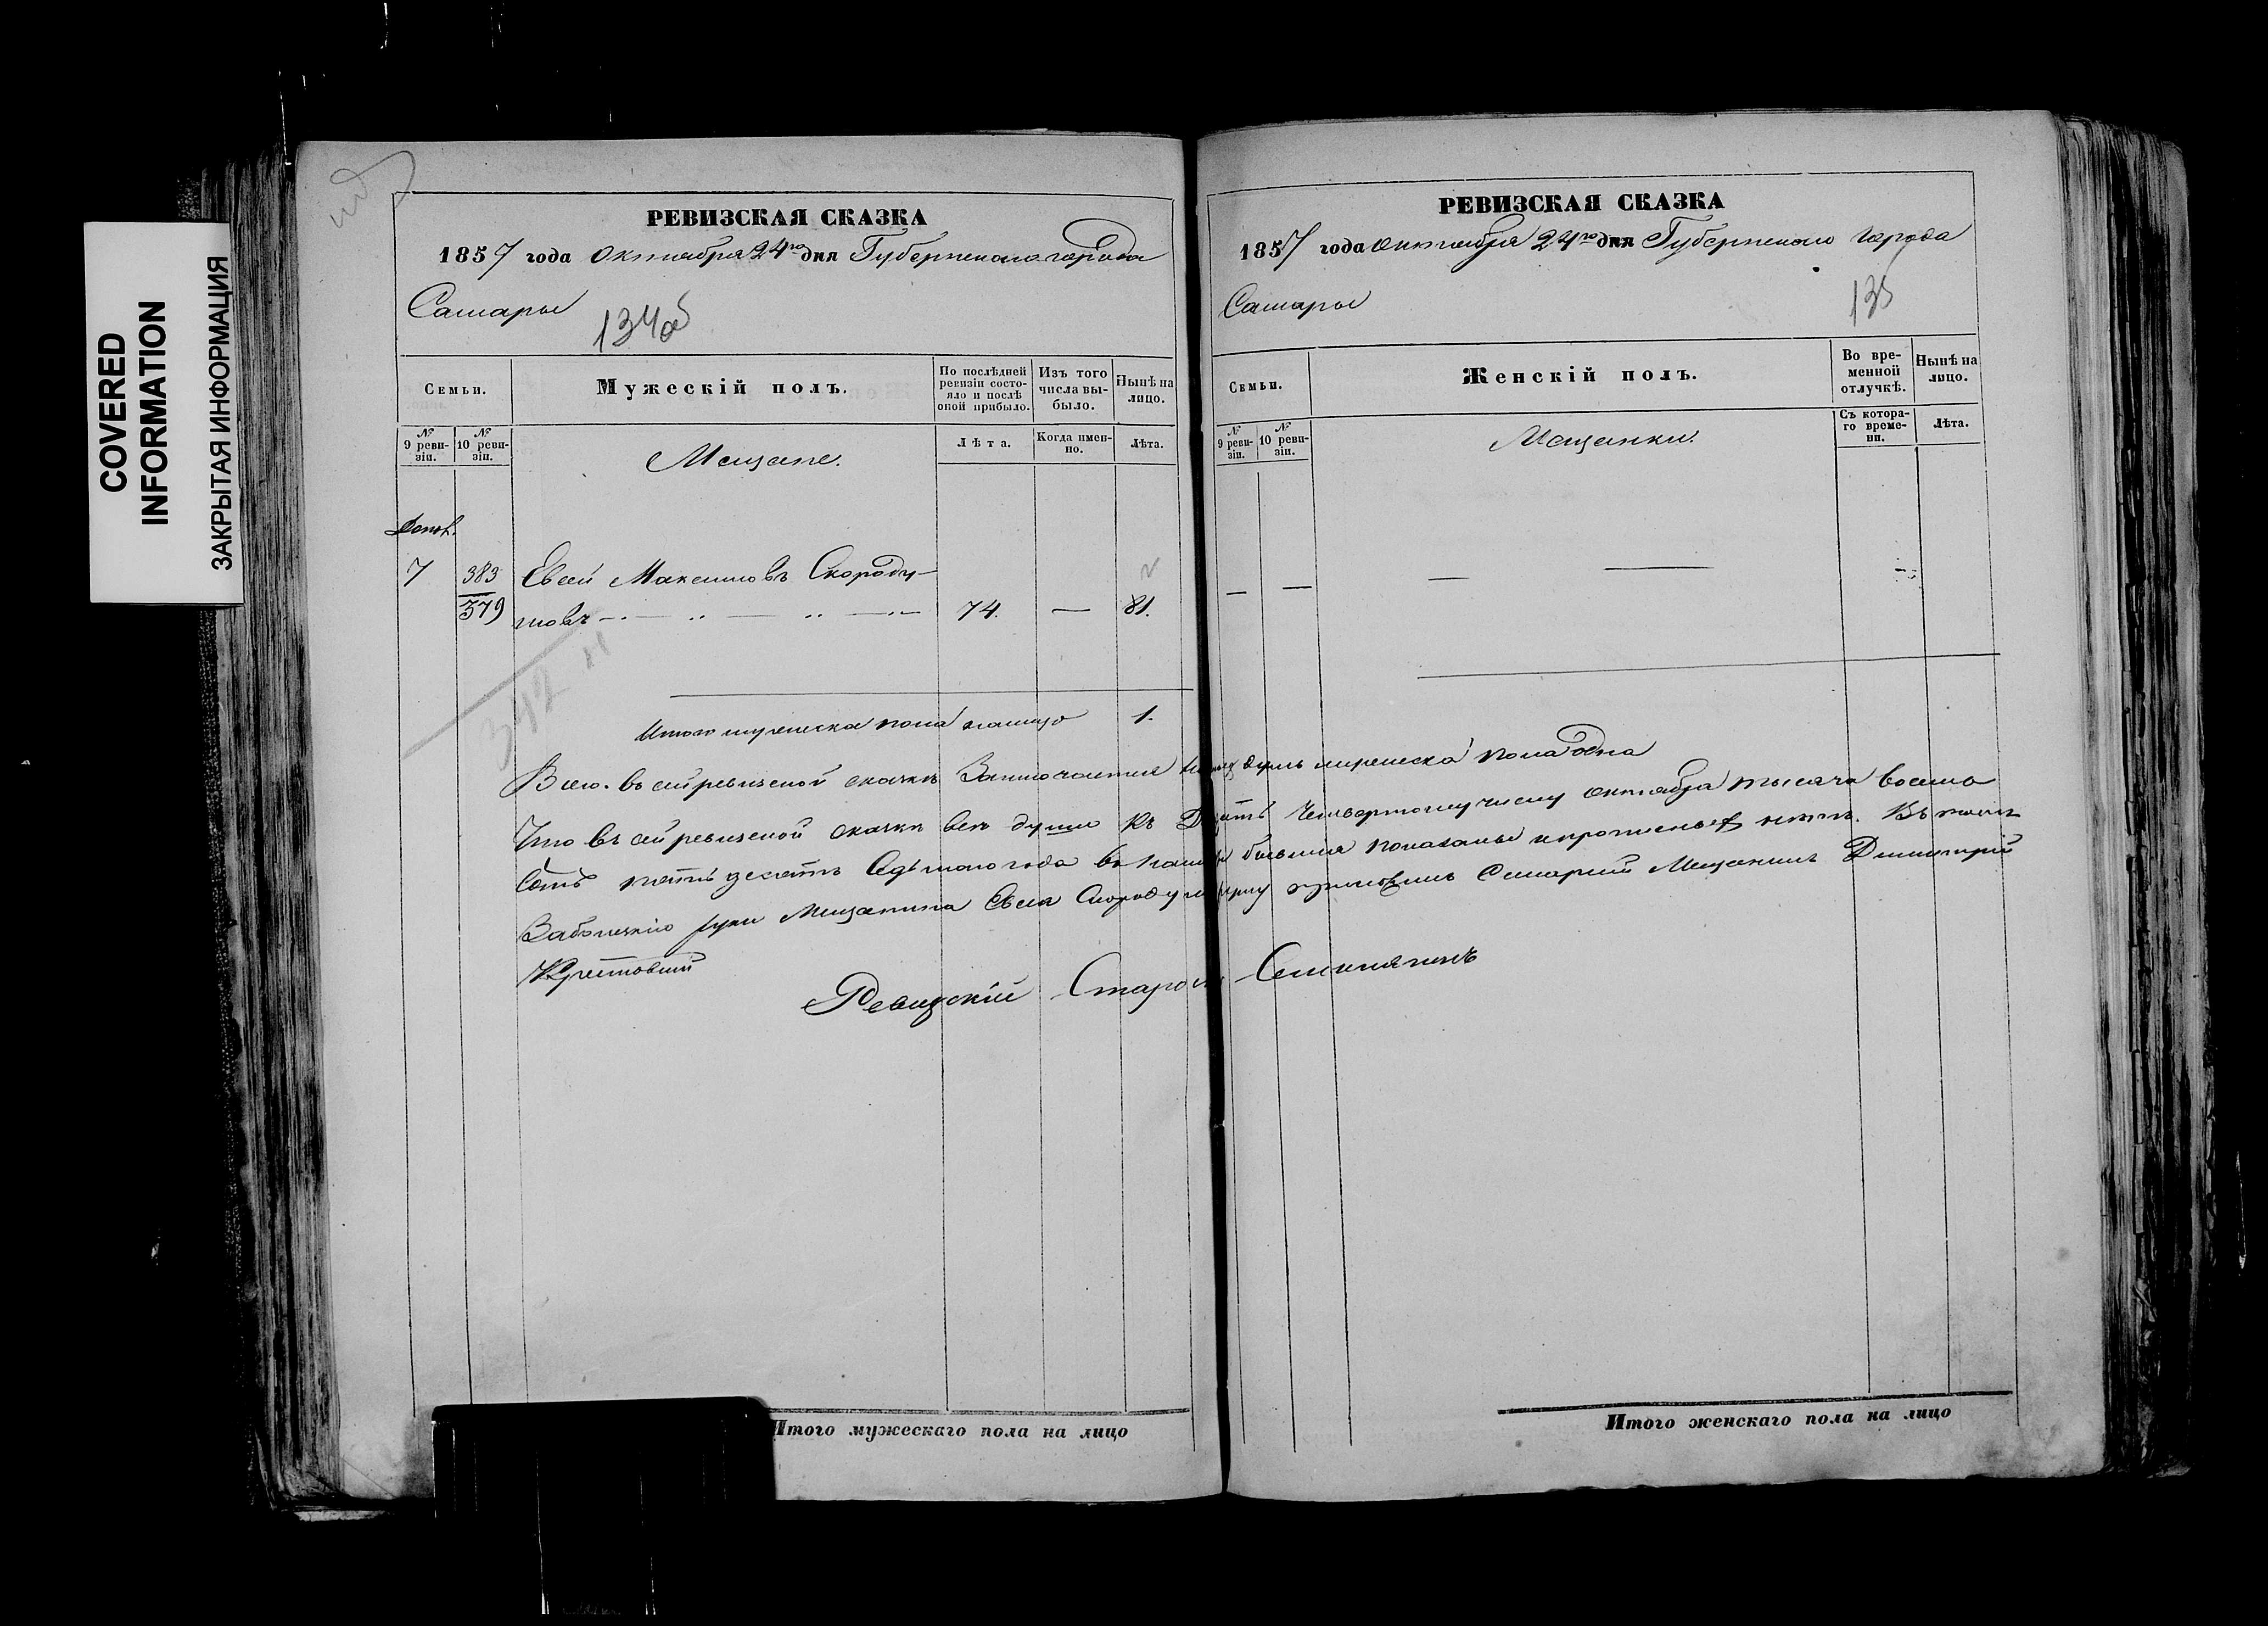 COVERED
INFORMATION
ЗАКРЫТАЯ ИНФОРМАЦИЯ
РЕВИЗСКАЯ СКАЗКА
1857 года Октября 24го дня Губернскаго города
Самары
134об
Семьи.
Мужескій полъ.
По послѣдней ревизіи состояло и послѣ оной прибыло.
Изъ того числа выбыло.
Нынѣ на лицо.
№ 9 ревизіи.
№ 10 ревизіи.
Мещане.
Лѣта.
Когда именно.
Лѣта.
7 383 Евсей Максимовъ Скороду-
379 мовъ 74. — 81.
342
Итого мужеска пола налицо 1.
РЕВИЗСКАЯ СКАЗКА
1857 года Октября 24го дня Губернскаго города
Самары
135
Семьи.
Женскій полъ.
Во временной отлучкѣ.
Нынѣ на лицо.
№ 9 ревизіи.
№ 10 ревизіи.
Мещанки.
Съ котораго времени.
Лѣта.
— — — —
Всего въ сей ревизской сказкѣ Заключается душъ мужеска пола одна
Что въ сей ревизской сказкѣ все души къ четвертому числу октября тысяча восемь
сотъ пятьдесятъ Седьмого года бывшія показаны и прописныхъ нѣтъ. Въ томъ
руки Мещанина Евсея Самарскій Мещанинъ Дмитрій
Ревизскій Староста
Итого мужескаго пола на лицо
Итого женскаго пола на лицо